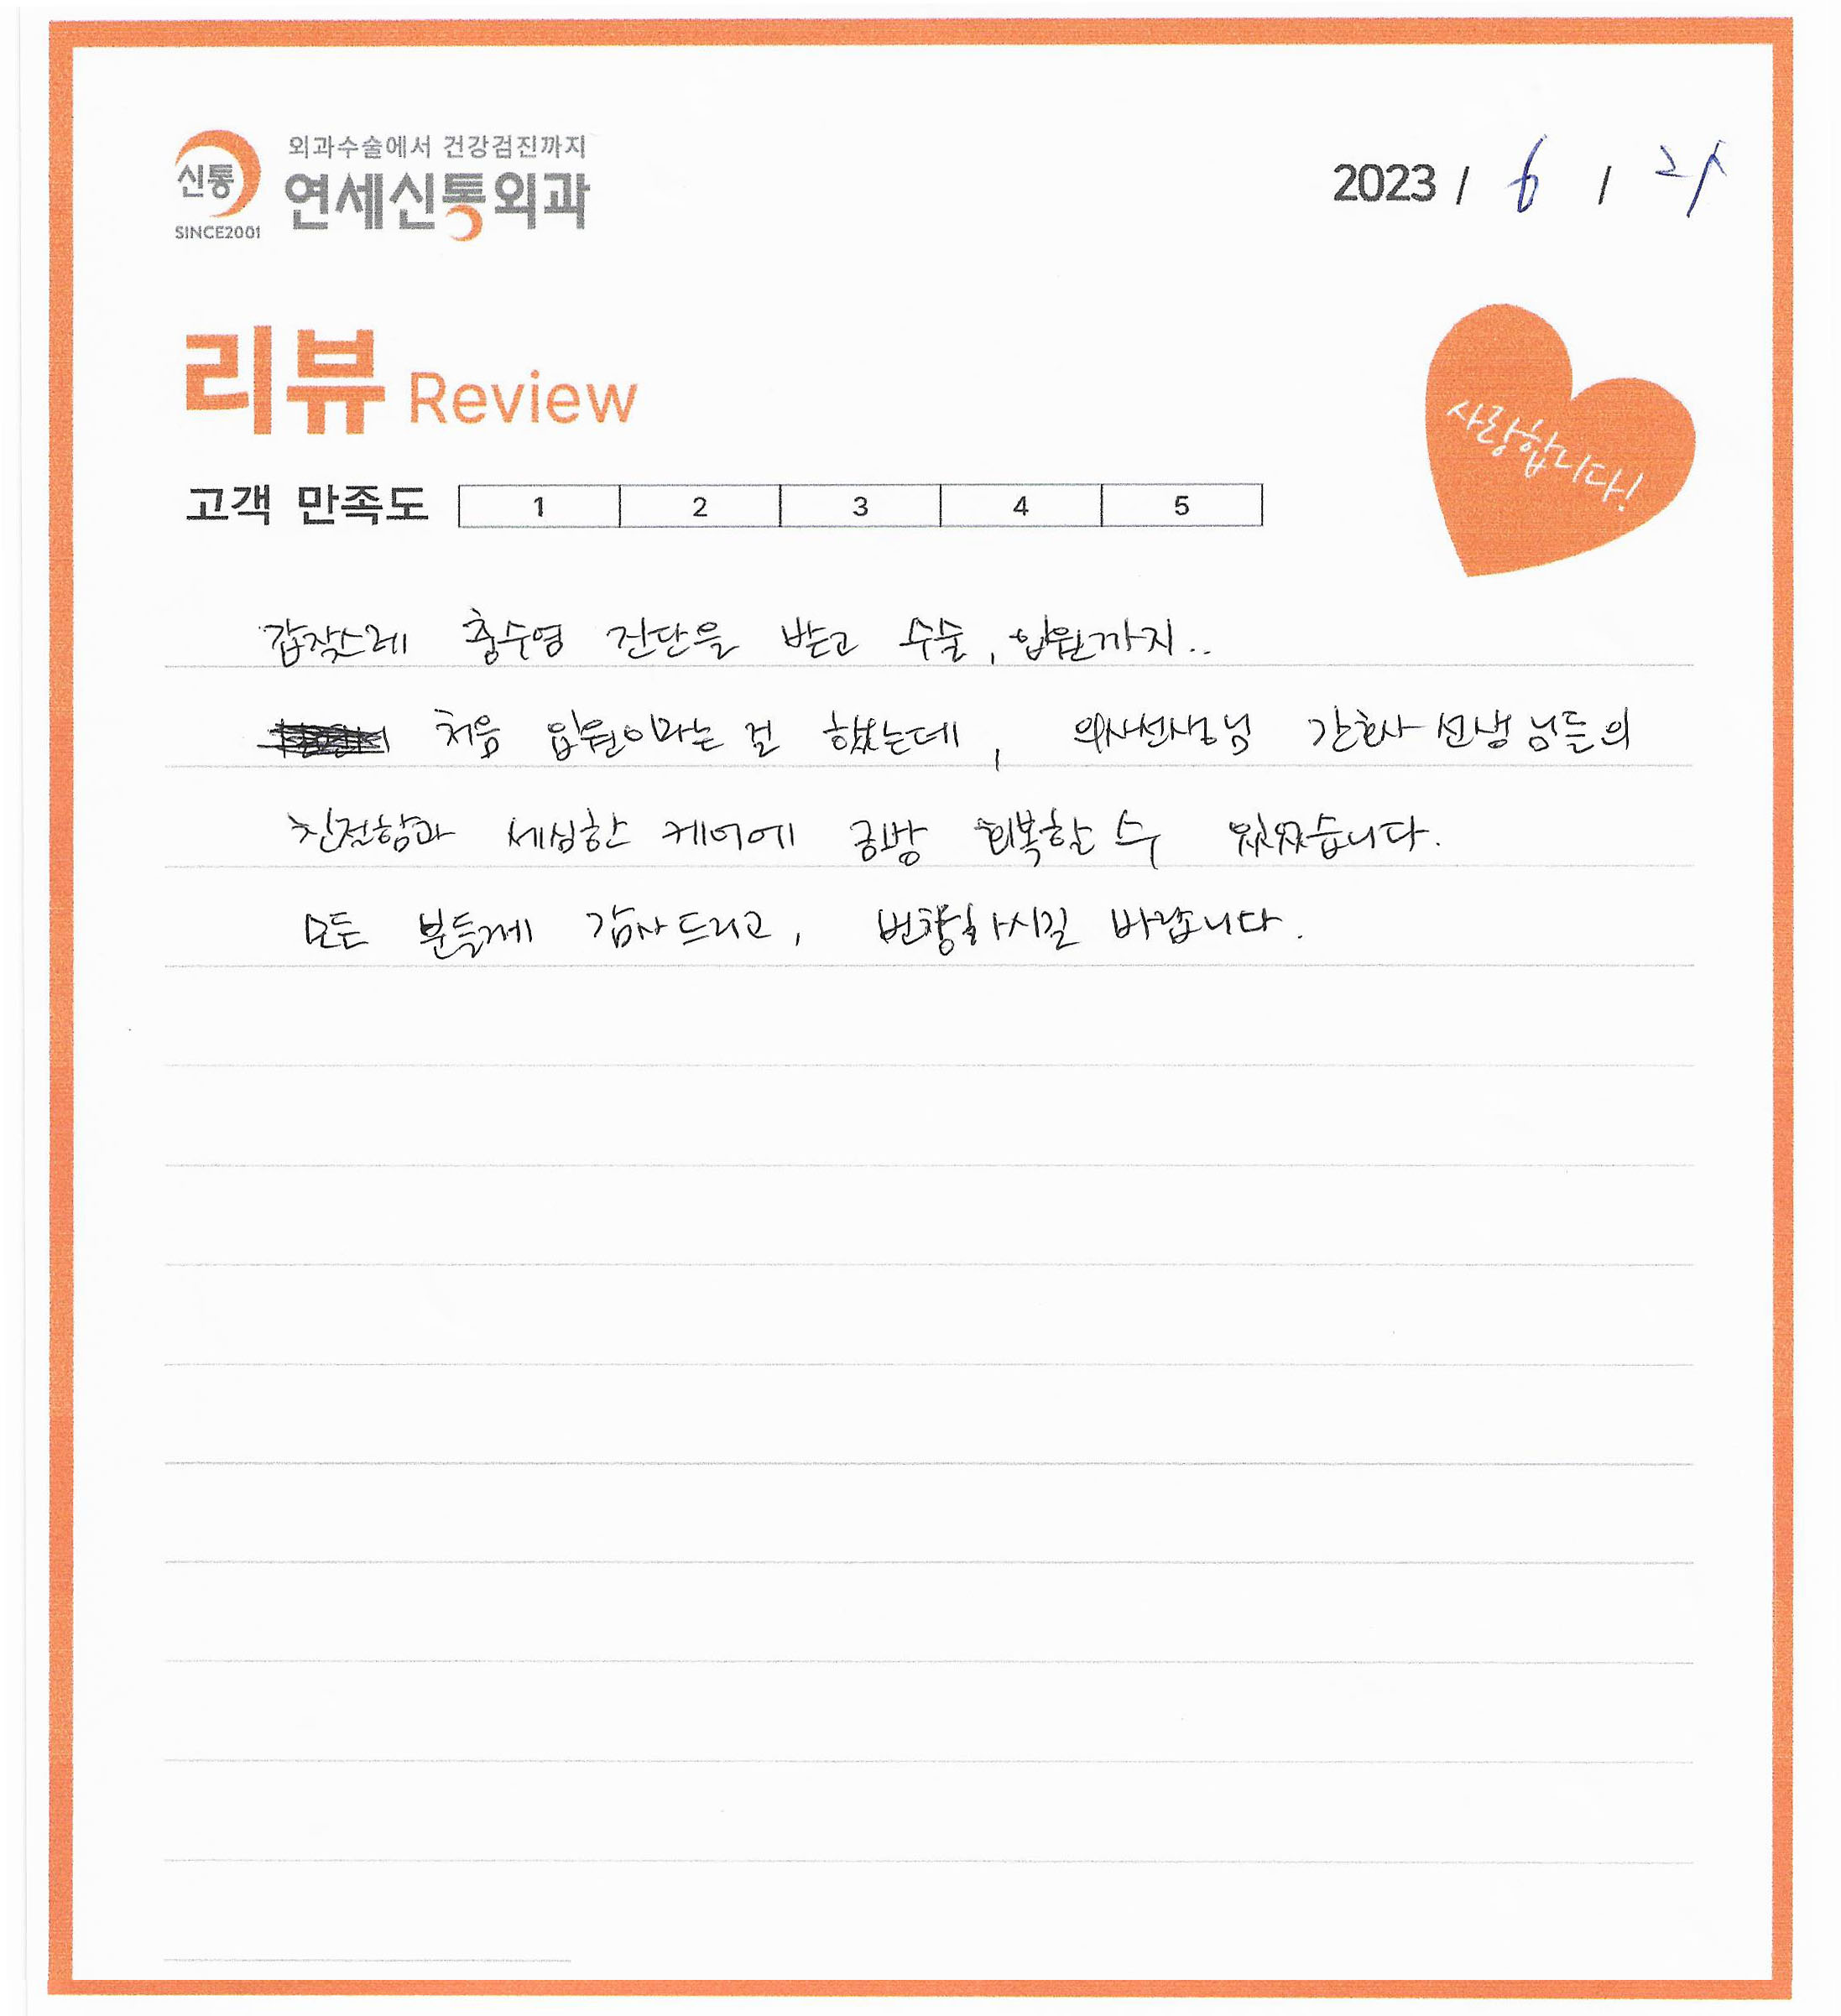 외과수술에서 건강검진까지
신통 연세신통외과
SINCE2001
2023 / 6 /
리뷰 Review
사랑합니다!
고객 만족도 1 2 3 4 5
갑작스레 충수염 진단을 받고 수술, 입원까지..
처음 입원이라는 걸 했는데, 의사선생님 간호사 선생님들의
친절함과 세심한 케어에 금방 회복할 수 있었습니다.
모든 분들께 감사드리고, 번창하시길 바랍니다.